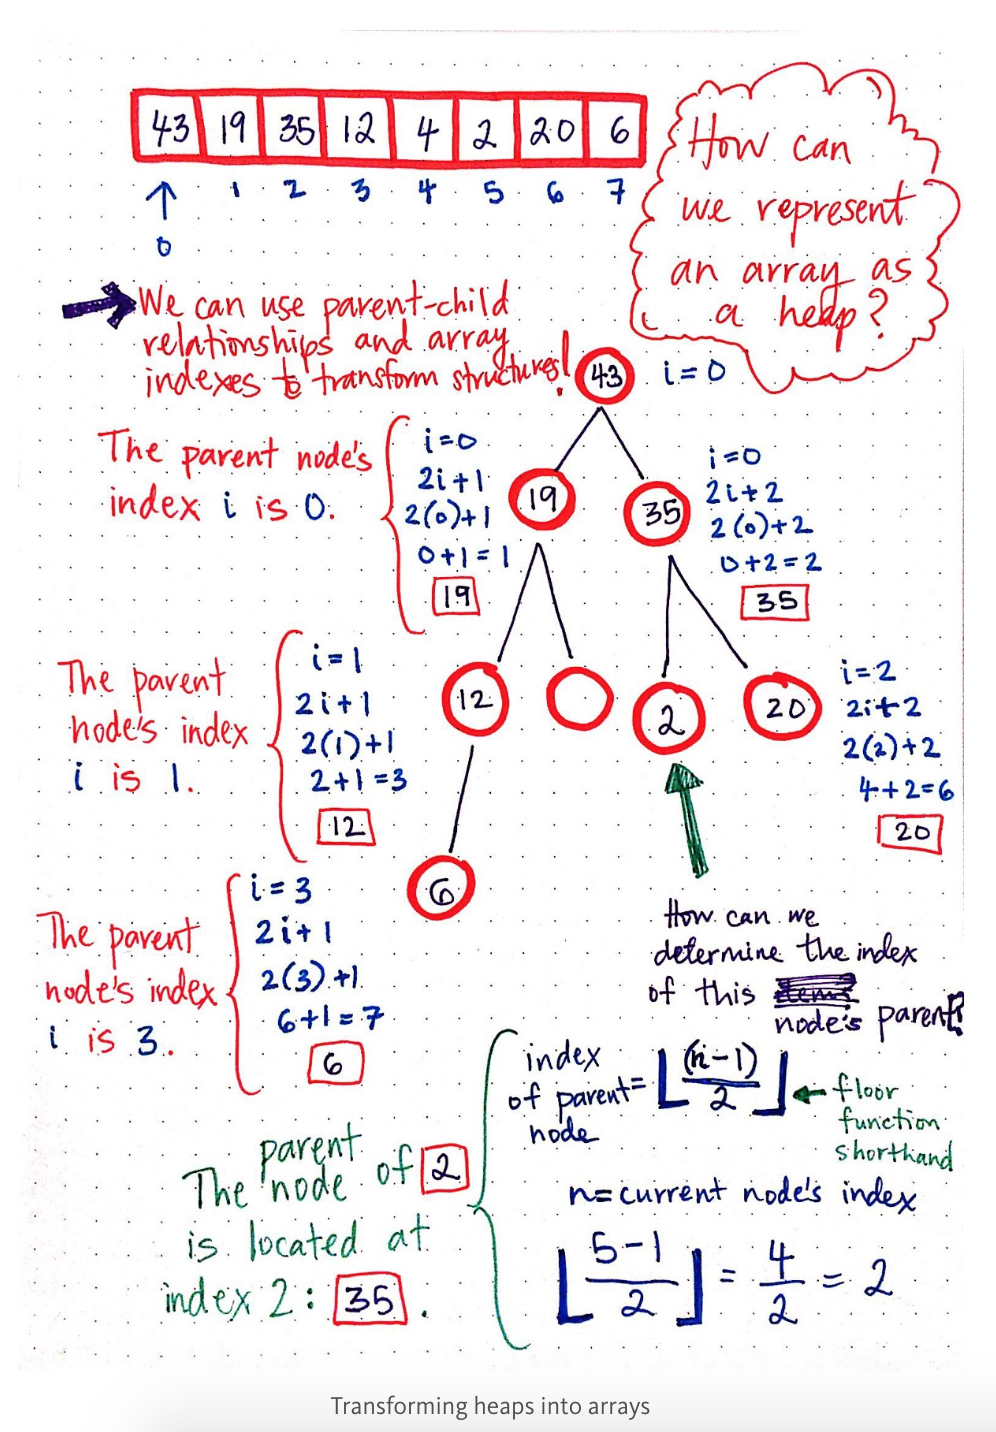 43 19 35 12 4 2 20 6
↑ 1 2 3 4 5 6 7
0
How can
we represent
an array as
a heap?
We can use parent-child
relationships and array
indexes to transform structures!
43 i=0
The parent node's
index i is 0.
i=0
2i+1
2(0)+1
0+1=1
19
19
35
i=0
2i+2
2(0)+2
0+2=2
35
The parent
node's index
i is 1.
i=1
2i+1
2(1)+1
2+1=3
12
12
2
20
i=2
2i+2
2(2)+2
4+2=6
20
The parent
node's index
i is 3.
i=3
2i+1
2(3)+1
6+1=7
6
6
How can we
determine the index
of this
node's parent?
index
of parent=
node
⌊(n-1)/2⌋
← floor
function
shorthand
n=current node's index
⌊5-1/2⌋ = 4/2 = 2
The parent node of 2
is located at
index 2: 35.
Transforming heaps into arrays